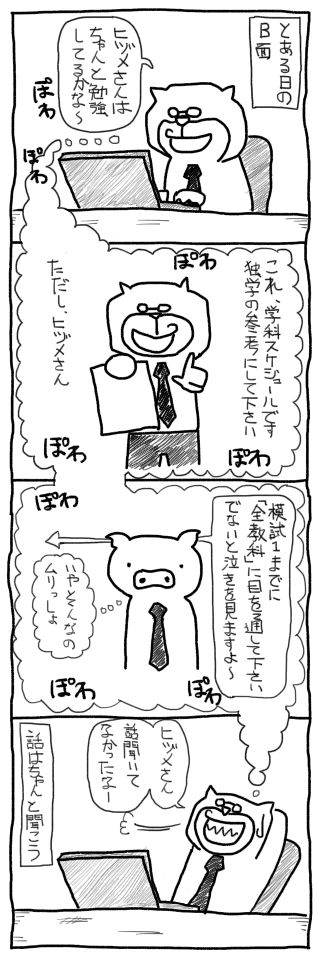 とある日の
B面
ヒヅメさんは
ちゃんと勉強
してるかな〜
ぽわ
ぽわ
ぽわ
これ、学科スケジュールです
独学の参考にして下さい
ただし、ヒヅメさん
ぽわ
ぽわ
ぽわ
模試1までに
「全教科」に目を通して下さい
でないと泣きを見ますよ〜
いやそんなの
ムリっしょ
ぽわ
ぽわ
ヒヅメさん
話聞いて
なかったなー
話はちゃんと聞こう